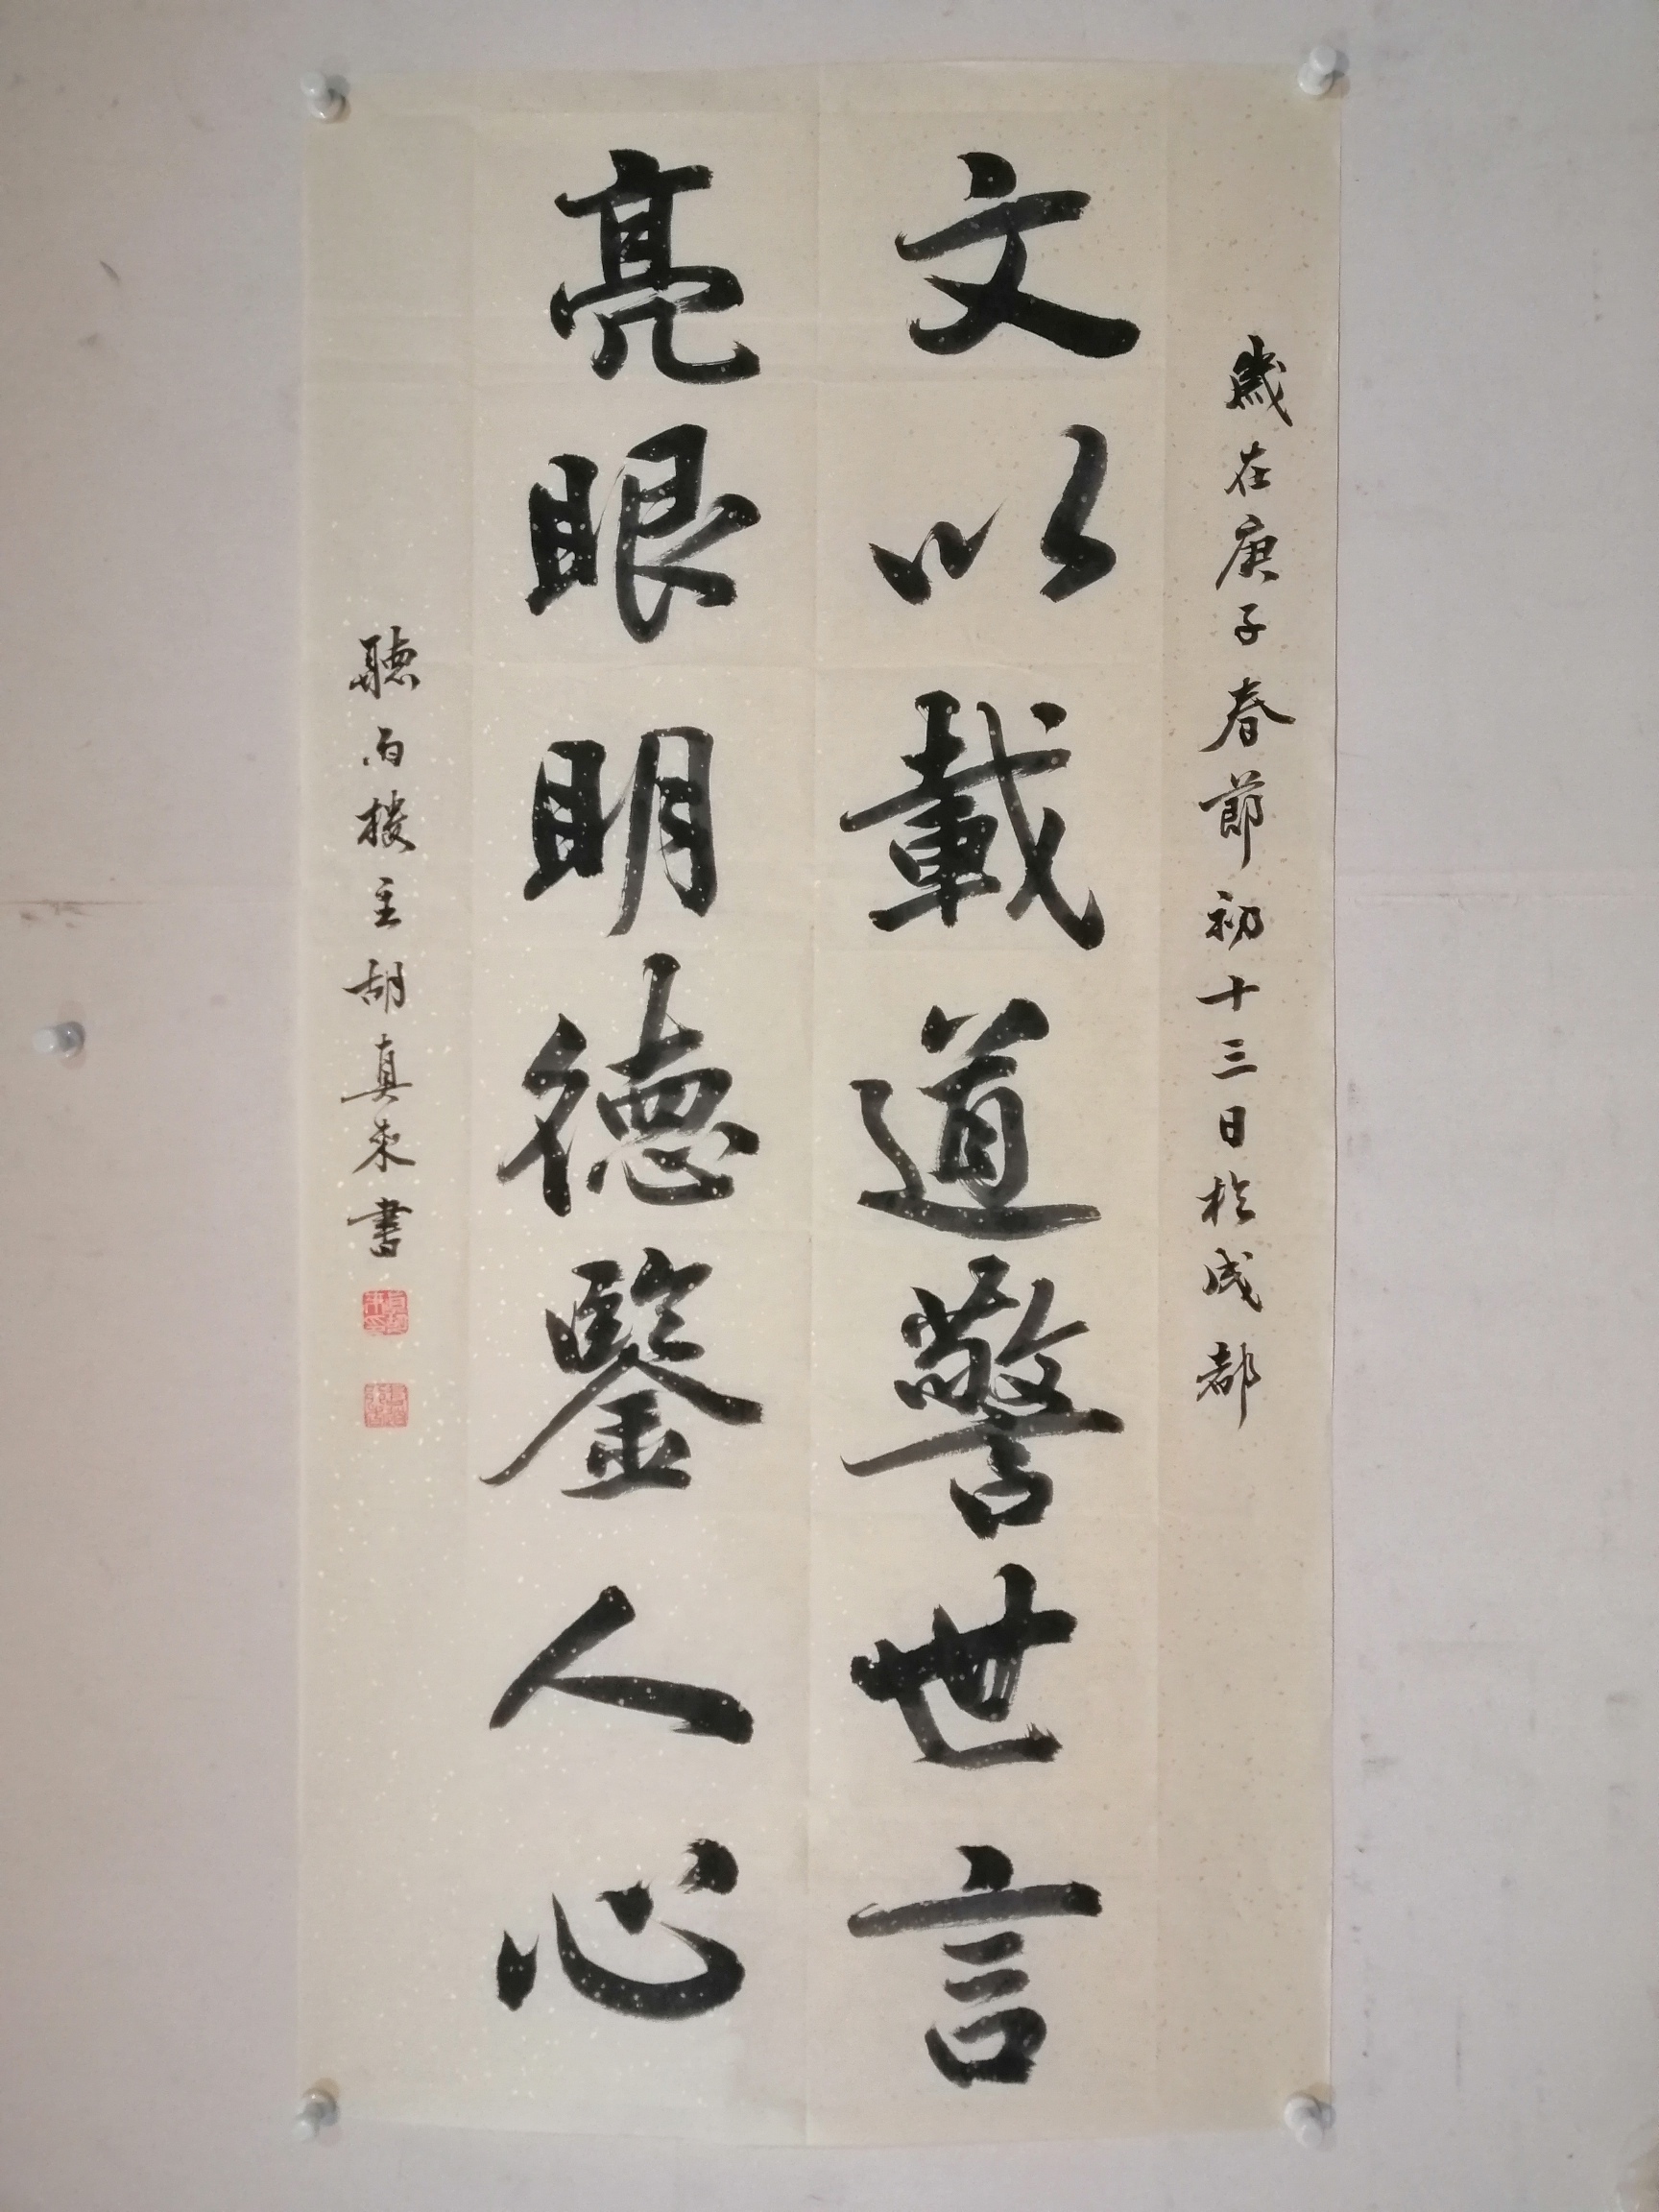 歲在庚子春節初十三日於成都
文以載道警世言
亮眼明德鑒人心
聽雨樓主胡真來書